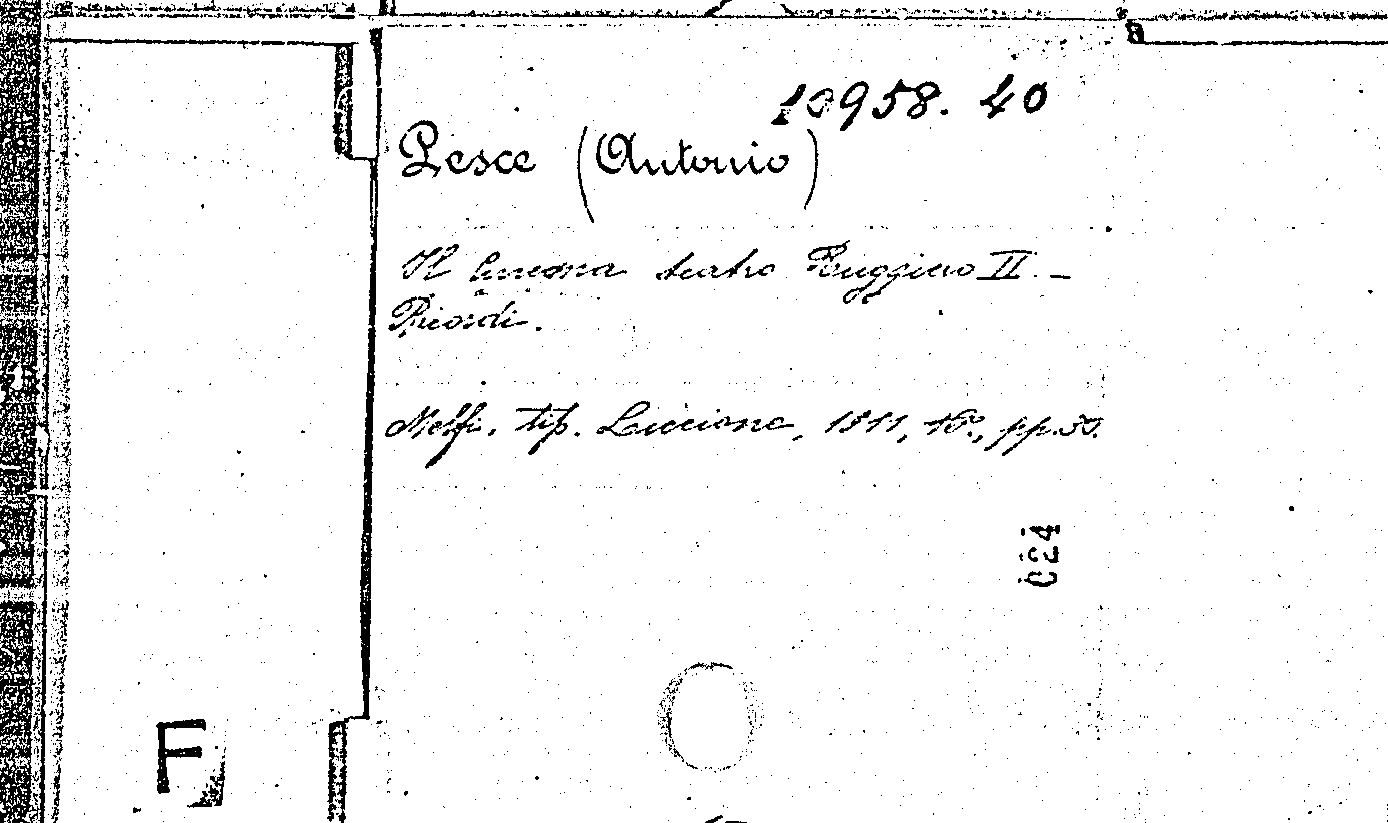 10958. 40
Pesce (Antonio)
Il Cinema teatro Ruggiero II. –
Ricordi.
Melfi, tip. Liccione, 1911, 16º, pp. 50.
024
F